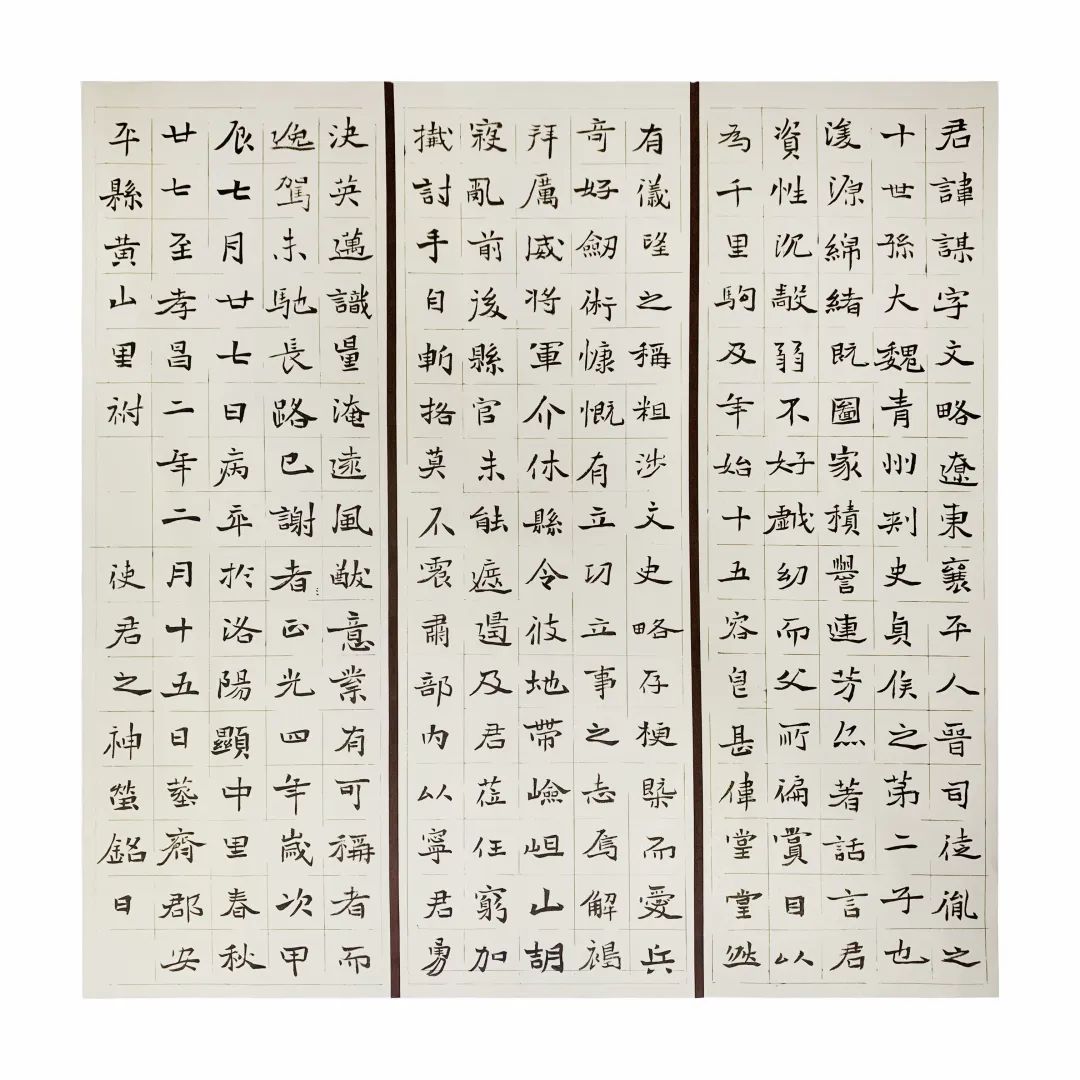 君諱謀字文略遼東襄平人晉司徒胤之
十世孫大魏青州刺史貞侯之第二子也
濬源綿緒既圖家積譽連芳亦著話言君
資性沉毅弱不好戲幼而父所偏賞目以
為千里駒及年始十五容皃甚偉堂堂然
有儀望之稱粗涉文史略存梗槩而愛兵
奇好劔術慷慨有立功立事之志焉解褐
拜厲威将軍介休縣令彼地帶嶮岨山胡
寇亂前後縣官未能遮遏及君莅任窮加
討手自斬挌莫不震肅部内以寧君勇
決英邁識量淹遠風猷意業有可稱者而
逸駕未馳長路已謝者正光四年歲次甲
辰七月廿七日病卒於洛陽顯中里春秋
廿七至孝昌二年二月十五日葬齊郡安
平縣黃山里祔 使君之神塋銘曰